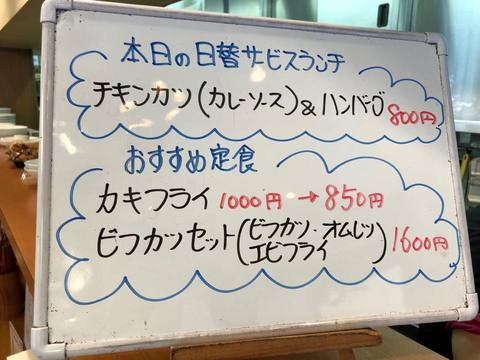 本日の日替サービスランチ
チキンカツ(カレーソース)&ハンバーグ 800円
おすすめ定食
カキフライ 1000円→850円
ビフカツセット(ビフカツ・オムレツ エビフライ) 1600円